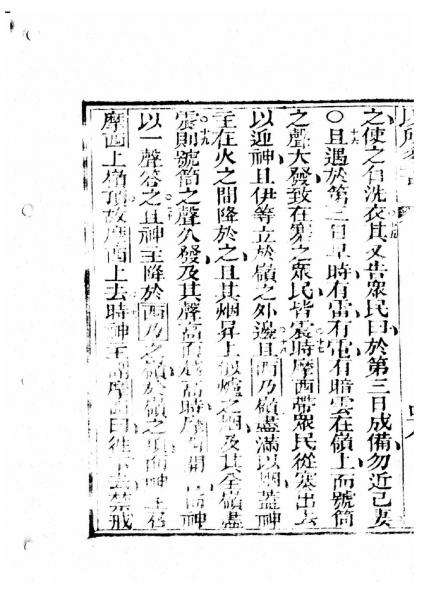 之使之自洗衣其又告眾民曰於第三日成備勿近己妻
○十六且遇於第三日早時有雷有電有暗雲在嶺上而號筒
之聲大發致在寨之眾民皆震十七時摩西帶眾民從寨出去
以迎神且伊等立於嶺之外邊十八且西乃嶺盡滿以烟蓋神
主在火之間降於之且其烟昇上似爐之烟及其全嶺盡
震十九則號筒之聲久發及其聲高而越高時摩西開言而神
以一聲答之且神主降於西乃之嶺於嶺之頂而神主召
摩西上嶺頂故摩西上去時神主謂摩西曰往下去禁戒